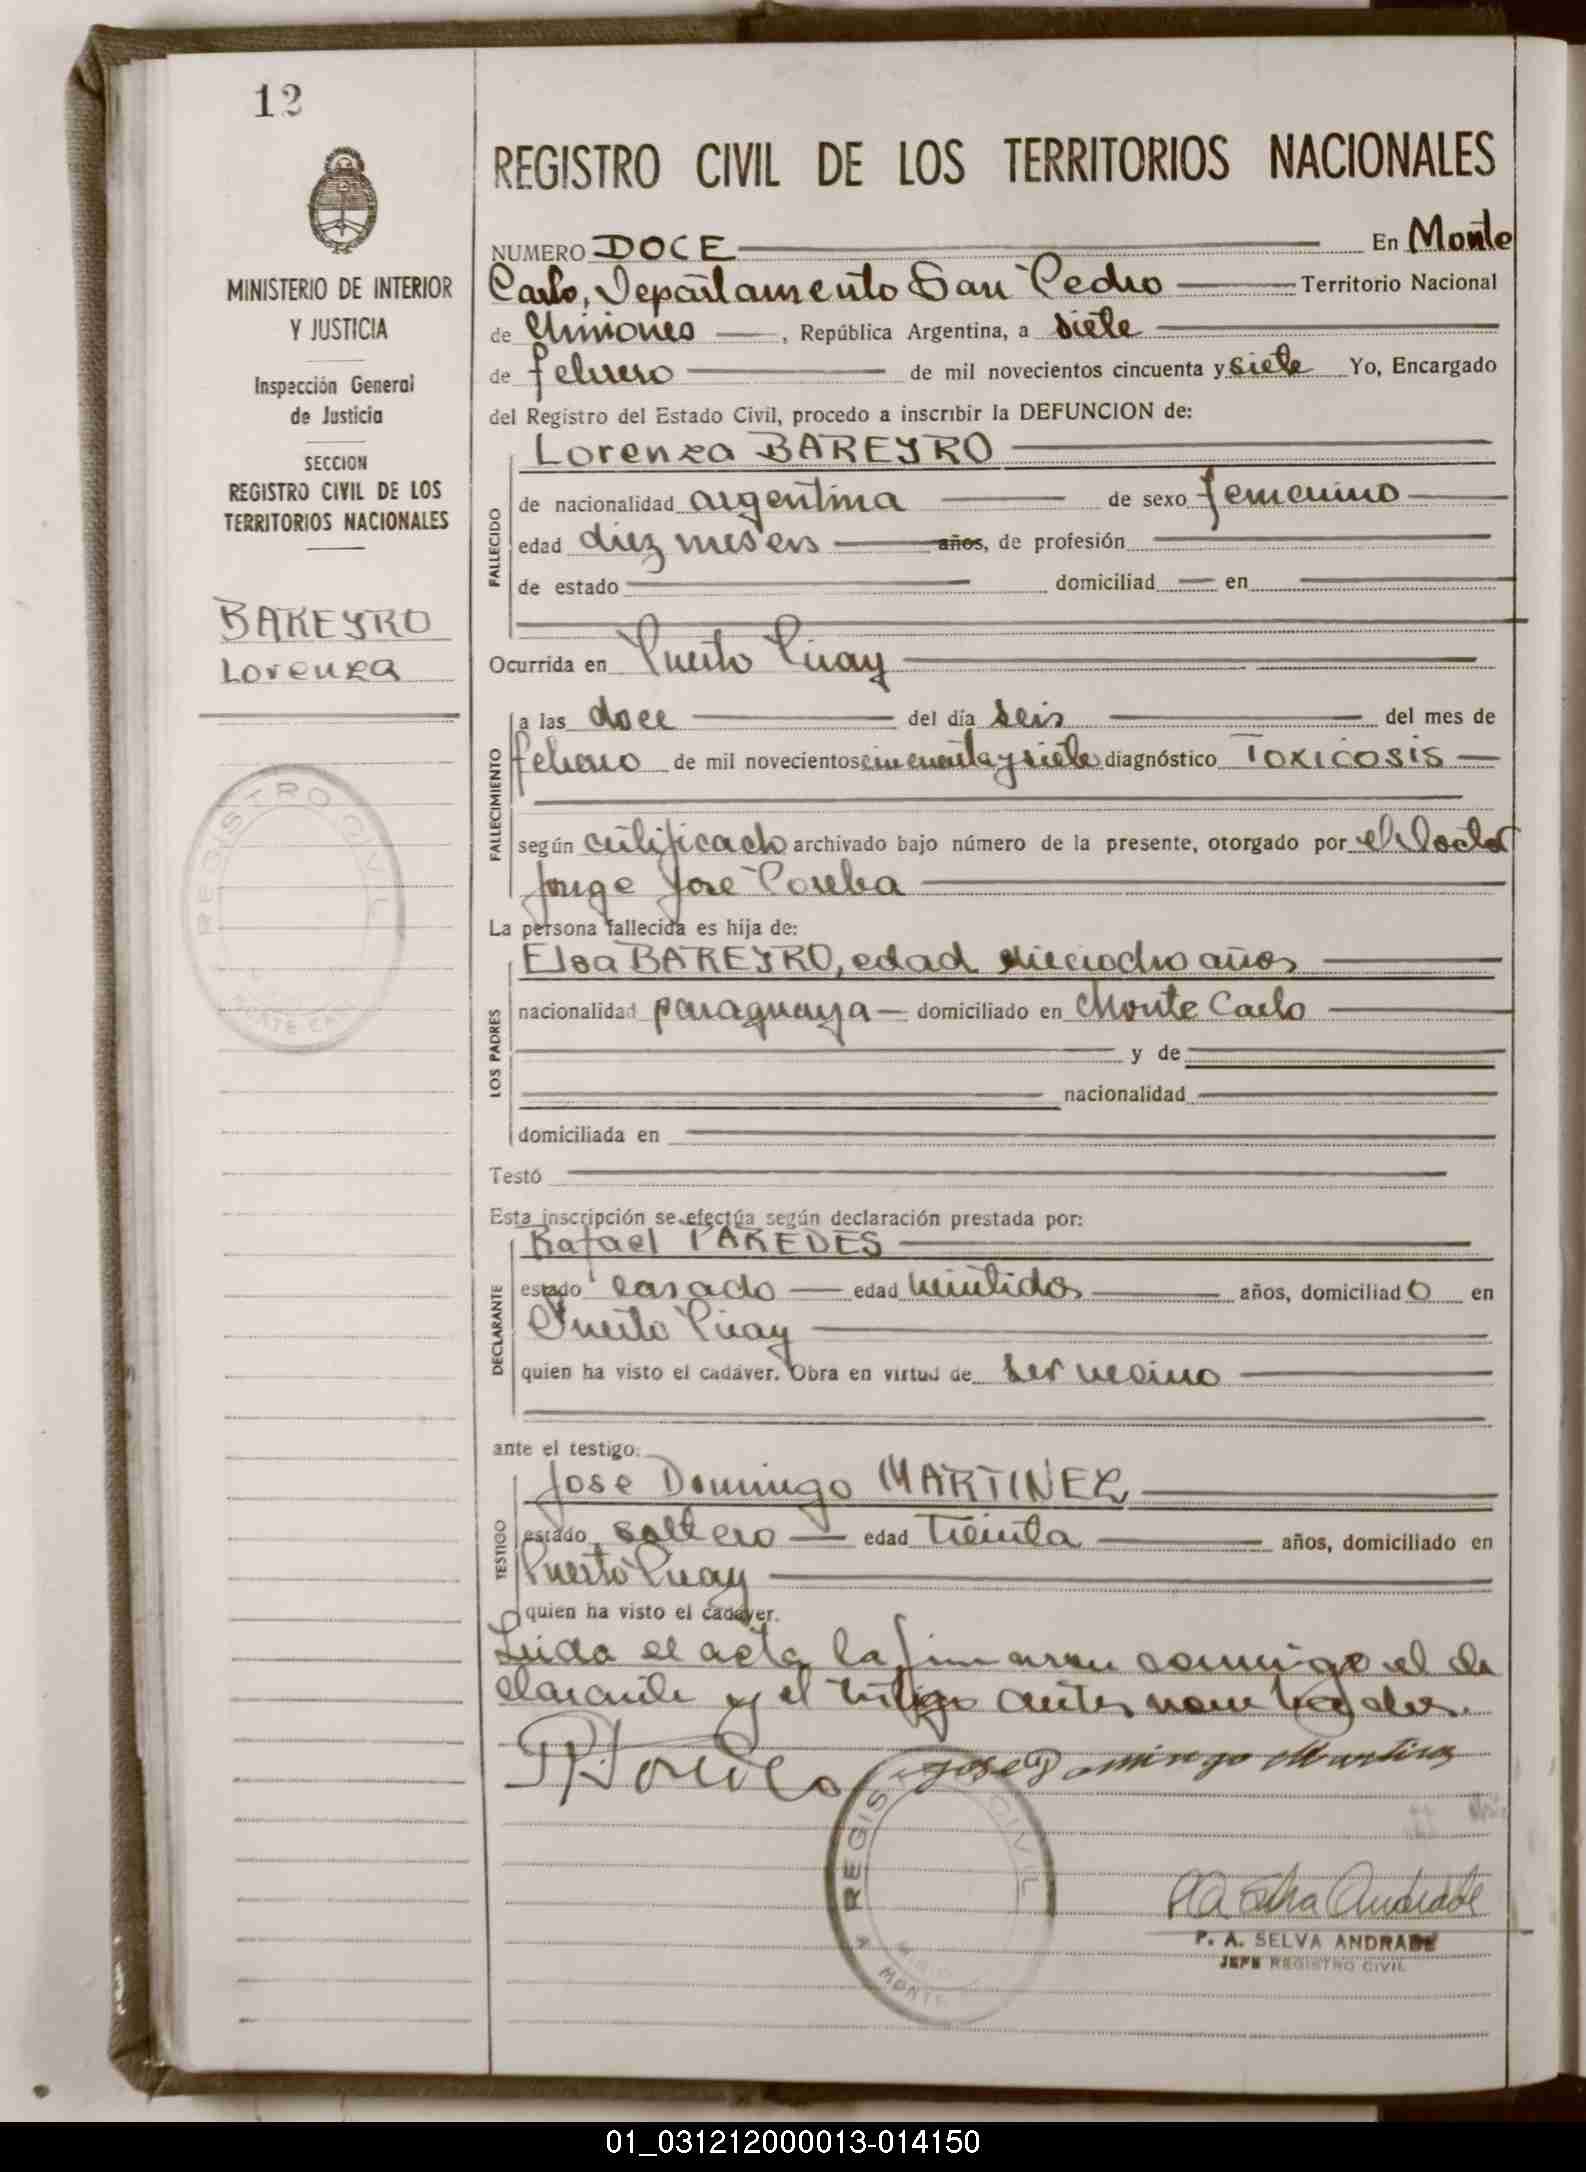 12
MINISTERIO DE INTERIOR
Y JUSTICIA
Inspección General
de Justicia
SECCION
REGISTRO CIVIL DE LOS
TERRITORIOS NACIONALES
BAREYRO
Lorenza
REGISTRO CIVIL
MONTE CARLO
REGISTRO CIVIL DE LOS TERRITORIOS NACIONALES
NUMERO DOCE En Monte
Carlo, Departamento San Pedro Territorio Nacional
de Misiones , República Argentina, a siete
de febrero de mil novecientos cincuenta y siete Yo, Encargado
del Registro del Estado Civil, procedo a inscribir la DEFUNCION de:
FALLECIDO
Lorenza BAREYRO
de nacionalidad argentina de sexo femenino
edad diez meses años, de profesión
de estado domiciliad en
Ocurrida en Puerto Piray
FALLECIMIENTO
a las doce del día seis del mes de
febrero de mil novecientos cincuenta y siete diagnóstico Toxicosis
según certificado archivado bajo número de la presente, otorgado por el doctor
Jorge José
La persona fallecida es hija de:
LOS PADRES
Elsa BAREYRO, edad dieciocho años
nacionalidad paraguaya domiciliado en Monte Carlo
y de
nacionalidad
domiciliada en
Testó
Esta inscripción se efectúa según declaración prestada por:
DECLARANTE
Rafael PAREDES
estado casado edad veintidos años, domiciliado en
Puerto Piray
quien ha visto el cadáver. Obra en virtud de ser vecino
ante el testigo:
TESTIGO
Jose Domingo MARTINEZ
estado soltero edad treinta años, domiciliado en
Puerto Piray
quien ha visto el cadáver.
Leida el acta la firmaron conmigo el de
clarante y el testigo antes nombrados.
Jose Domingo Martines
REGISTRO CIVIL
MONTE
P. A. Selva Andrade
P. A. SELVA ANDRADE
JEFE REGISTRO CIVIL
01_031212000013-014150